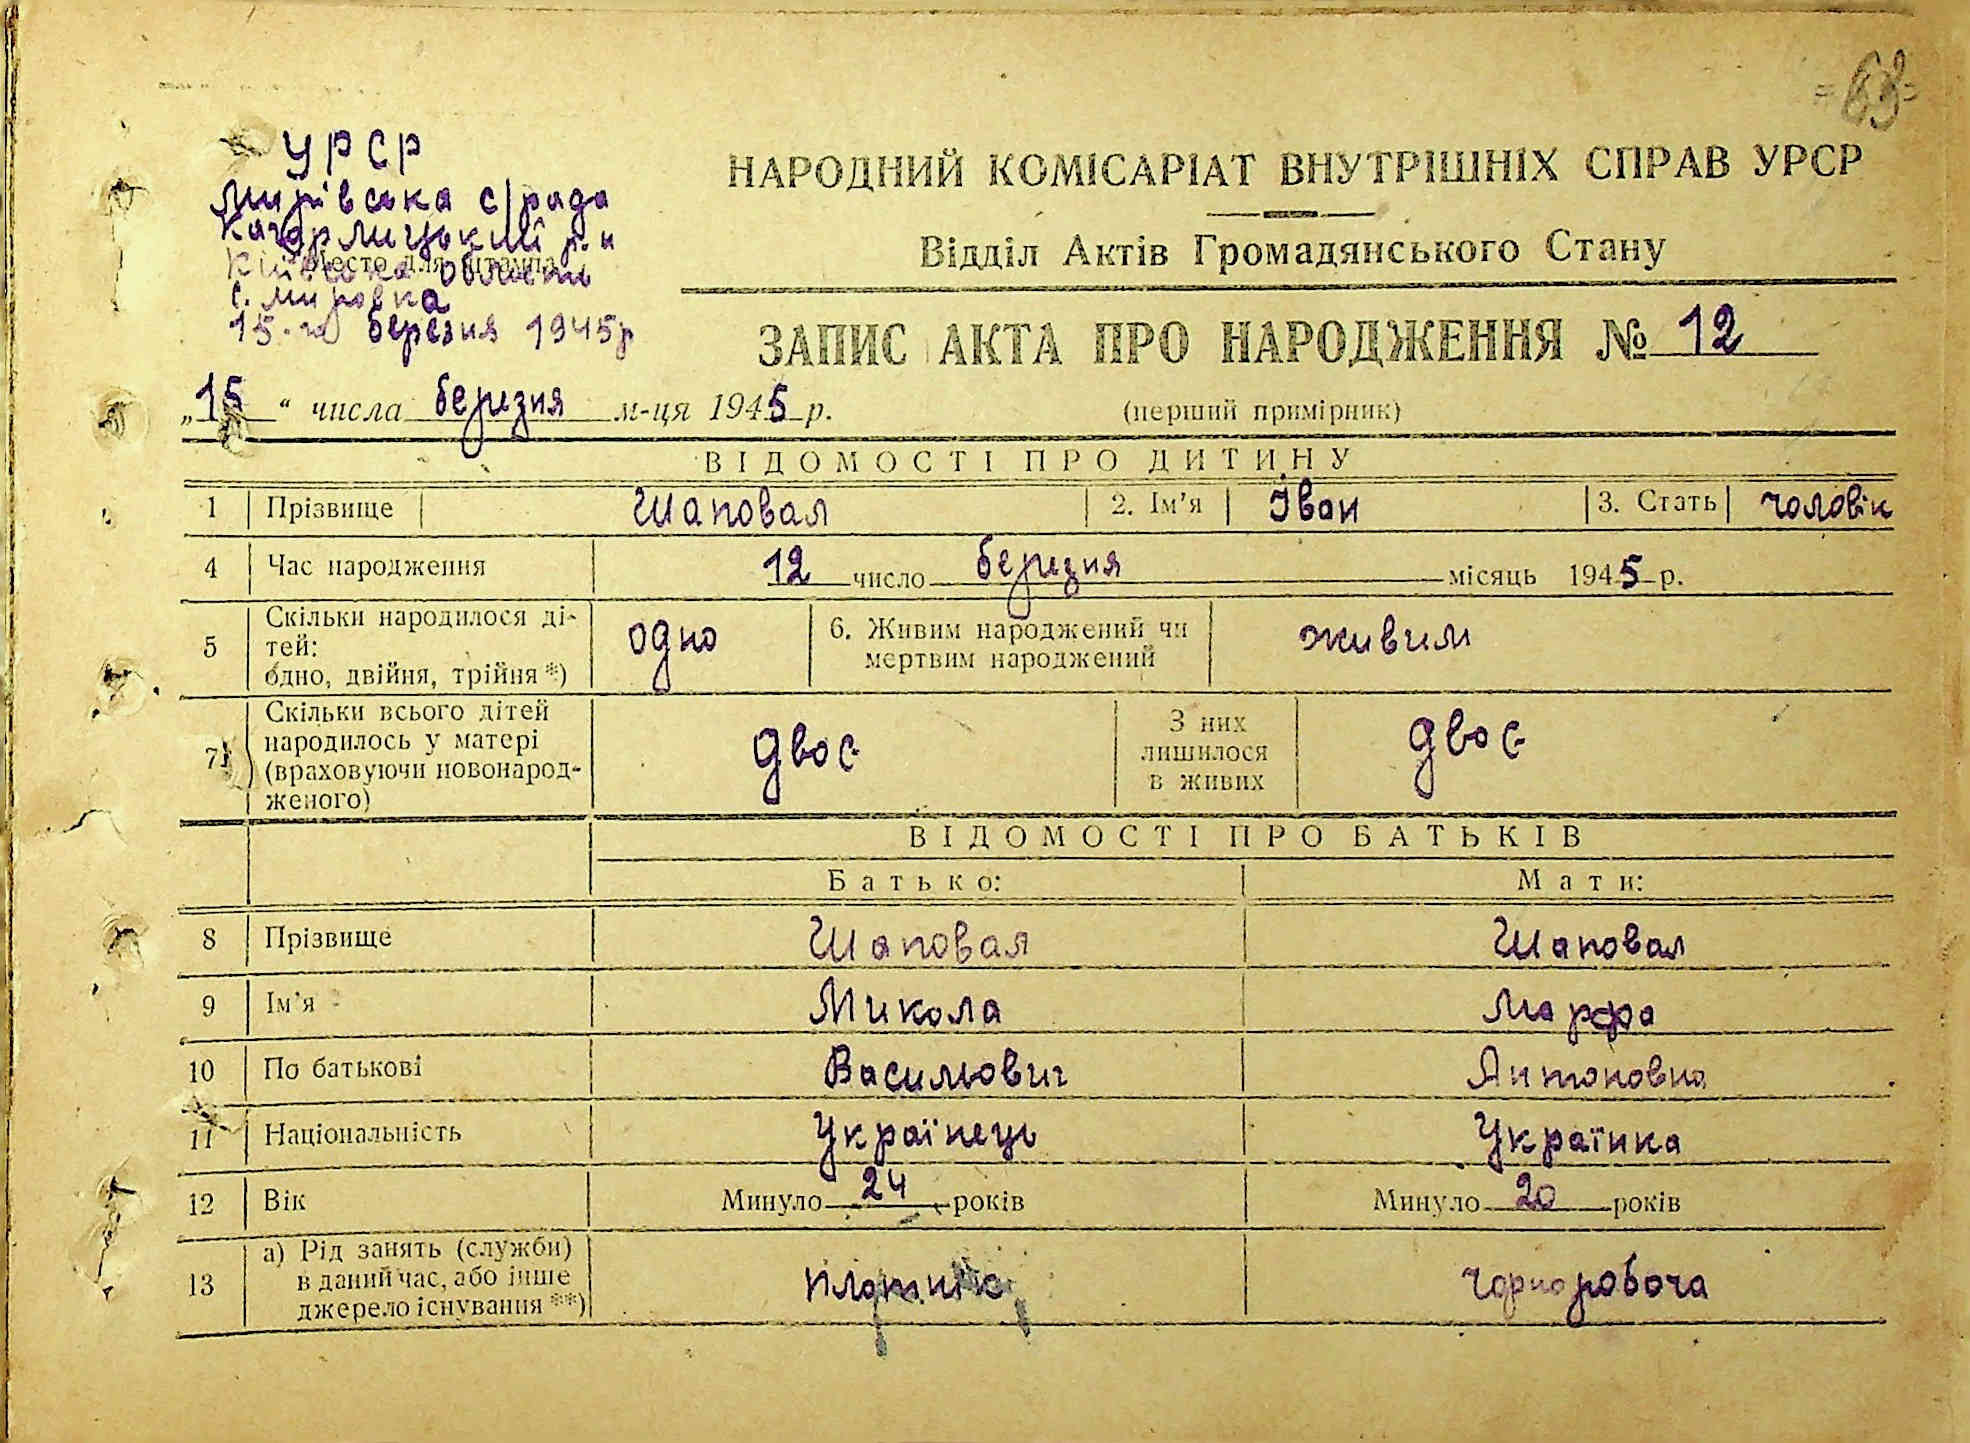 = 63 =
УРСР
Мирівська с/рада
Кагарлицький р-н
Київська області
Место для штампа
с. Мировка
15-го березня 1945р
НАРОДНИЙ КОМІСАРІАТ ВНУТРІШНІХ СПРАВ УРСР
Відділ Актів Громадянського Стану
ЗАПИС АКТА ПРО НАРОДЖЕННЯ № 12
„15“ числа березня м-ця 1945 р.
(перший примірник)
ВІДОМОСТІ ПРО ДИТИНУ
1 Прізвище Шаповал 2. Ім'я Іван 3. Стать чоловік
4 Час народження 12 число березня місяць 1945 р.
5 Скільки народилося ді-
тей:
одно, двійня, трійня *) одно 6. Живим народжений чи
мертвим народжений живим
7 Скільки всього дітей
народилось у матері
(враховуючи новонарод-
женого) двоє З них
лишилося
в живих двоє
ВІДОМОСТІ ПРО БАТЬКІВ
Батько: Мати:
8 Прізвище Шаповал Шаповал
9 Ім'я Микола Марфа
10 По батькові Васильович Антоновна
11 Національність Українець Українка
12 Вік Минуло 24 років Минуло 20 років
13 а) Рід занять (служби)
в даний час, або інше
джерело існування **) плотник чорноробоча